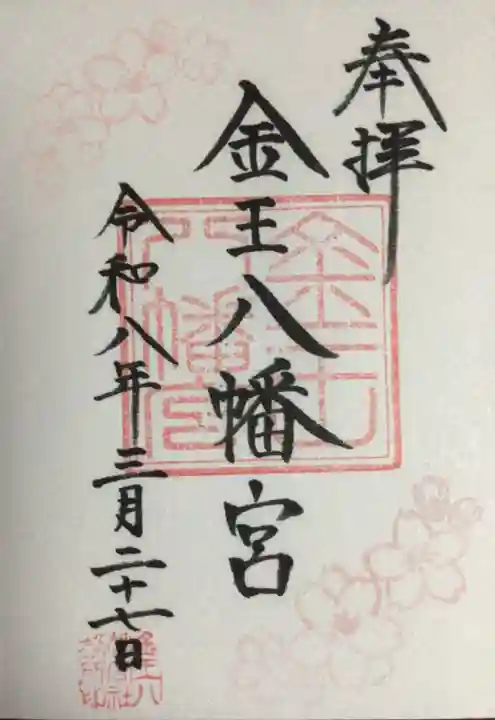 奉拝
金王八幡宮
令和八年三月二十七日
金王八幡宮